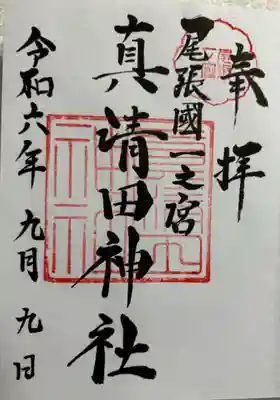 奉拝
尾張國一之宮
真清田神社
令和六年九月九日